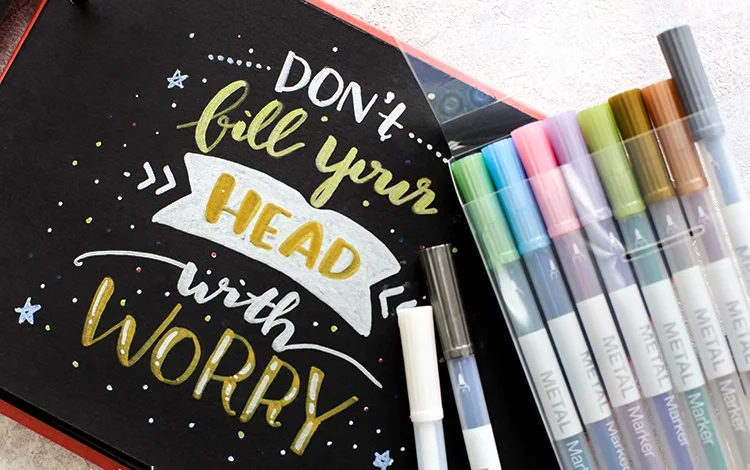 DON't
fill your
HEAD
with
WORRY
METAL Marker
METAL Marker
METAL Marker
METAL Marker
METAL Marker
METAL Marker
METAL Marker